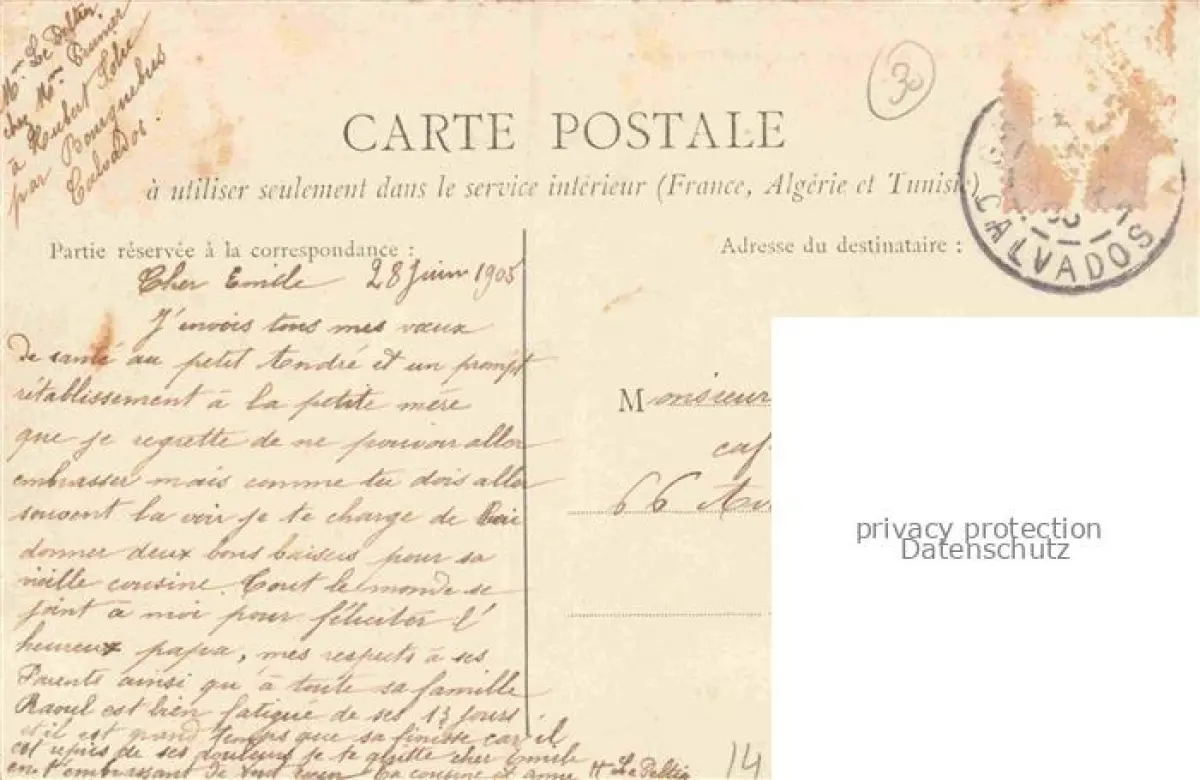 Mme Le Peltier
chez Mme Prunier
à Hubert Folie
par Bourguébus
Calvados.
30
CARTE POSTALE
à utiliser seulement dans le service intérieur (France, Algérie et Tunisie)
CALVADOS
Partie réservée à la correspondance :
Adresse du destinataire :
Cher Emile 28 Juin 1905
J'envois tous mes vœux
de santé au petit André et un prompt
rétablissement à la petite mère
que je regrette de ne pouvoir aller
embrasser mais comme tu dois aller
souvent la voir je te charge de lui
donner deux bons baisers pour sa
vieille cousine. Tout le monde se
joint à moi pour féliciter l'
heureux papa, mes respects à ses
Parents ainsi qu'à toute sa famille
Raoul est bien fatigué de ses 13 jours
et il est grand temps que sa finisse car il
est repris de ses douleurs je te quitte cher Emile
en t'embrassant de tout cœur ta cousine et amie H Le Peltier
Monsieur
caf
66 Av
14
privacy protection
Datenschutz